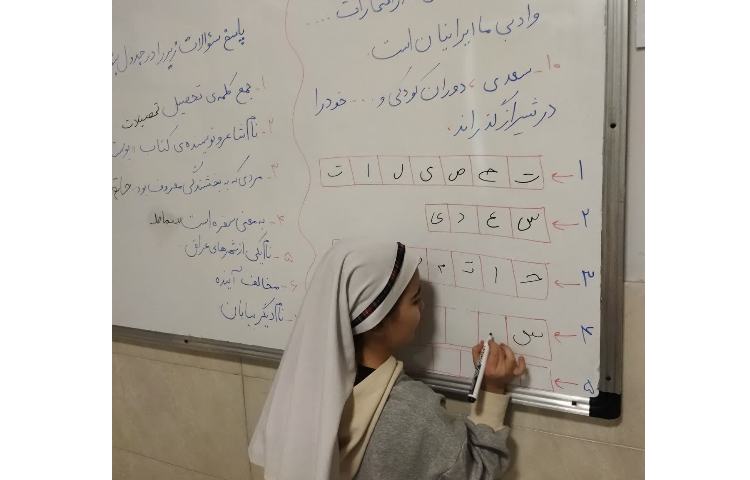 افتخارات ....
و ادبی ما ایرانیان است.
۱۰- سعدی، دوران کودکی و .... خود را
در شیراز گذراند.
۱ ← ت ح ص ی ل ا ت
۲ ← س ع د ی
۳ ← ح ا ت م
۴ ← س
۵ ←
پاسخ سؤالات زیر را در جدول
۱- جمع کلمه‌ی تحصیل تحصیلات
۲- نام شاعر و نویسنده‌ی کتاب «بوستان
۳- مردی که به بخشندگی معروف بود. حاتم
۴- به معنی سفره است
۵- نام یکی از شهرهای عراق
۶- مخالف آینده
نام دیگر بیابان